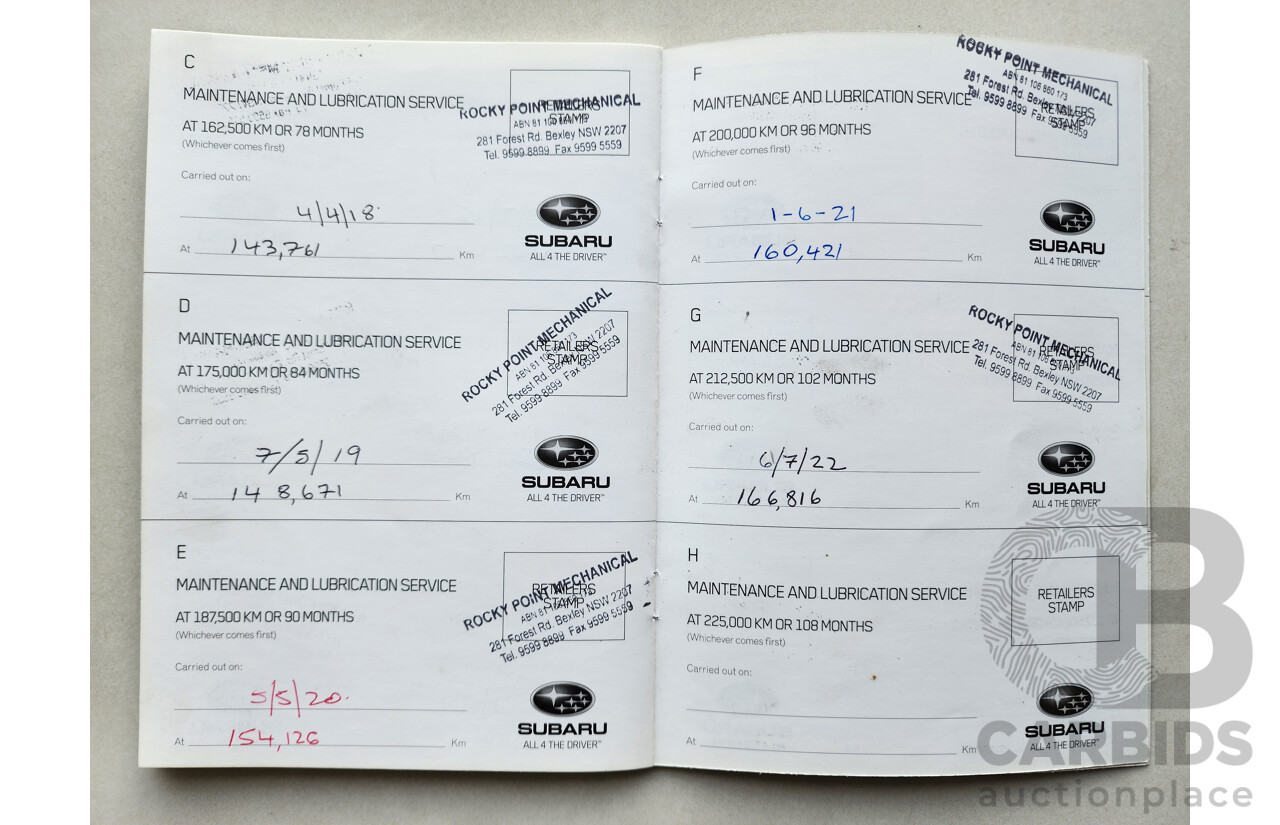 C
MAINTENANCE AND LUBRICATION SERVICE
AT 162,500 KM OR 78 MONTHS
(Whichever comes first)
Carried out on:
4/4/18
At 143,761 Km
RETAILERS
STAMP
ROCKY POINT MECHANICAL
281 Forest Rd. Bexley NSW 2207
Tel. 9599 8899 Fax 9599 5559
SUBARU
ALL 4 THE DRIVER™
D
MAINTENANCE AND LUBRICATION SERVICE
AT 175,000 KM OR 84 MONTHS
(Whichever comes first)
Carried out on:
7/5/19
At 148,671 Km
RETAILERS
STAMP
ROCKY POINT MECHANICAL
281 Forest Rd. Bexley NSW 2207
Tel. 9599 8899 Fax 9599 5559
SUBARU
ALL 4 THE DRIVER™
E
MAINTENANCE AND LUBRICATION SERVICE
AT 187,500 KM OR 90 MONTHS
(Whichever comes first)
Carried out on:
5/5/20.
At 154,126 Km
RETAILERS
STAMP
ROCKY POINT MECHANICAL
281 Forest Rd. Bexley NSW 2207
Tel. 9599 8899 Fax 9599 5559
SUBARU
ALL 4 THE DRIVER™
F
MAINTENANCE AND LUBRICATION SERVICE
AT 200,000 KM OR 96 MONTHS
(Whichever comes first)
Carried out on:
1-6-21
At 160,421 Km
RETAILERS
STAMP
ROCKY POINT MECHANICAL
ABN 81 106 860 173
281 Forest Rd. Bexley NSW 2207
Tel. 9599 8899 Fax 9599 5559
SUBARU
ALL 4 THE DRIVER™
G
MAINTENANCE AND LUBRICATION SERVICE
AT 212,500 KM OR 102 MONTHS
(Whichever comes first)
Carried out on:
6/7/22
At 166,816 Km
RETAILERS
STAMP
ROCKY POINT MECHANICAL
281 Forest Rd. Bexley NSW 2207
Tel. 9599 8899 Fax 9599 5559
SUBARU
ALL 4 THE DRIVER™
H
MAINTENANCE AND LUBRICATION SERVICE
AT 225,000 KM OR 108 MONTHS
(Whichever comes first)
Carried out on:
At Km
RETAILERS
STAMP
SUBARU
ALL 4 THE DRIVER™
CB
CARBIDS
auctionplace